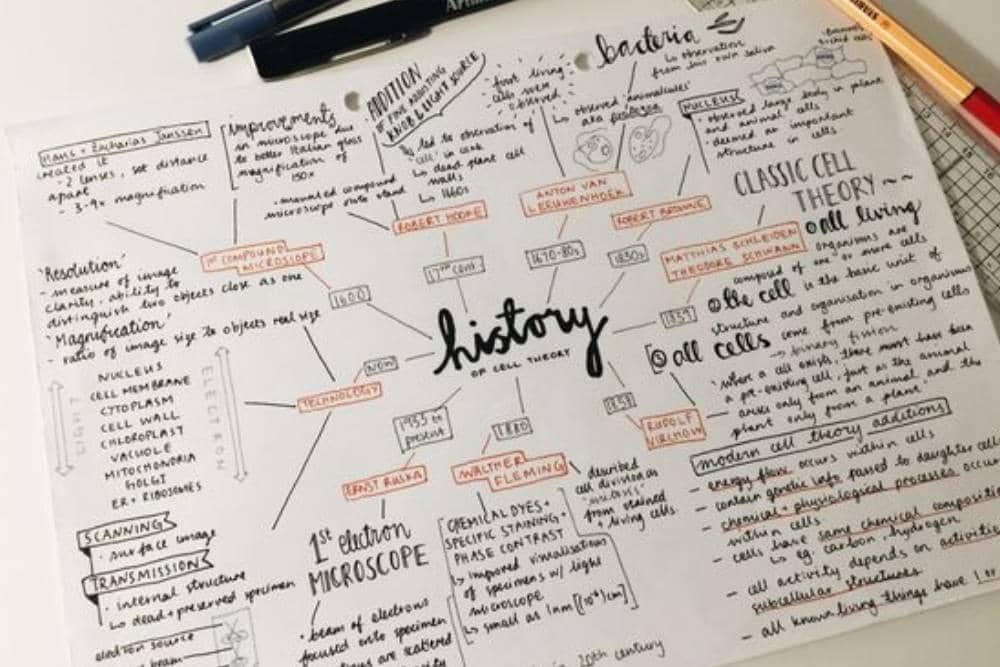 Hans + Zacharias Janssen
created it
- 2 lenses, set distance
apart
- 3-9x magnification
improvements
on microscope due
to better Italian glass
magnification of
150x
- mounted compound
microscope onto stand
ADDITION
OF FINE ADJUSTING
KNOB & LIGHT SOURCE
This led to observation of
'cell' in cork
↳ dead plant cell
walls
↳ 1660s
first living
cells were
observed
bacteria
↳ observation
from his own saliva
↳ observed 'animalcules'
aka protozoa
NUCLEUS
• observed large body in plant
and animal cells
• deemed as important
structure in
cells
1ST COMPOUND
MICROSCOPE
1600
ROBERT HOOKE
17th cent.
ANTON VAN
LEEUWENHOEK
1670-80s
ROBERT BROWNE
1830s
MATTHIAS SCHLEIDEN
THEODORE SCHWANN
1839
CLASSIC CELL
THEORY ~~
① all living
organisms are
composed of one or more cells
② the cell is the basic unit of
structure and organisation in organisms
③ all cells come from pre-existing cells
→ binary fission
"where a cell exists, there must have been
a pre-existing cell, just as the animal
arises only from an animal and the
plant only from a plant"
history
OF CELL THEORY
'Resolution'
- measure of image
clarity, ability to
distinguish two objects close as one
'Magnification'
- ratio of image size to objects real size
NOW
TECHNOLOGY
LIGHT
ELECTRON
NUCLEUS
CELL MEMBRANE
CYTOPLASM
CELL WALL
CHLOROPLAST
VACUOLE
MITOCHONDRIA
GOLGI
ER + RIBOSOMES
SCANNING
• surface image
TRANSMISSION
• internal structure
↳ dead + preserved specimen
electron source
beam
1933 to
present
ERNST RUSKA
1st electron
MICROSCOPE
• beam of electrons
focused onto specimen
are scattered
1880
WALTHER
FLEMING
CHEMICAL DYES +
SPECIFIC STAINING +
PHASE CONTRAST
↳ improved visualisation
of specimens w/ light
microscope
↳ small as 1nm [(10⁻⁹)m]
• described
cell division as
'mitosis'
from stained
+ living cells.
20th century
1858
RUDOLF
VIRCHOW
modern cell theory additions
- energy flow occurs within cells
- contain genetic info passed to daughter cells
- chemical + physiological processes occur
within cells
- cells have same chemical composition
↳ eg. carbon, hydrogen
- cell activity depends on
subcellular structures
- all known living things have 1 or